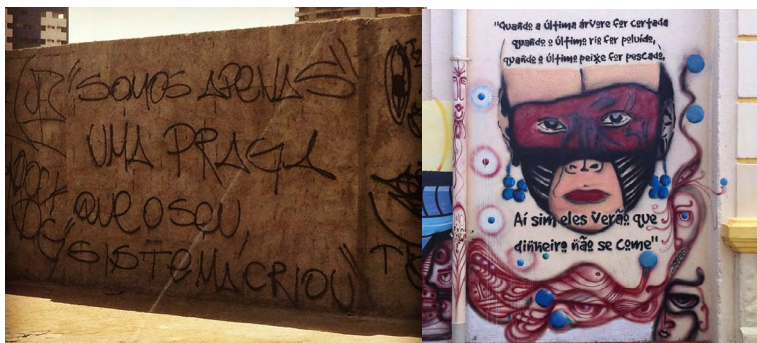 "SOMOS APENAS"
UMA PRAGA
QUE O SEU,
"SISTEMA CRIOU"
"Quando a última árvore for cortada
quando o último rio for poluído,
quando o último peixe for pescado,
Aí sim eles verão que
dinheiro não se come"